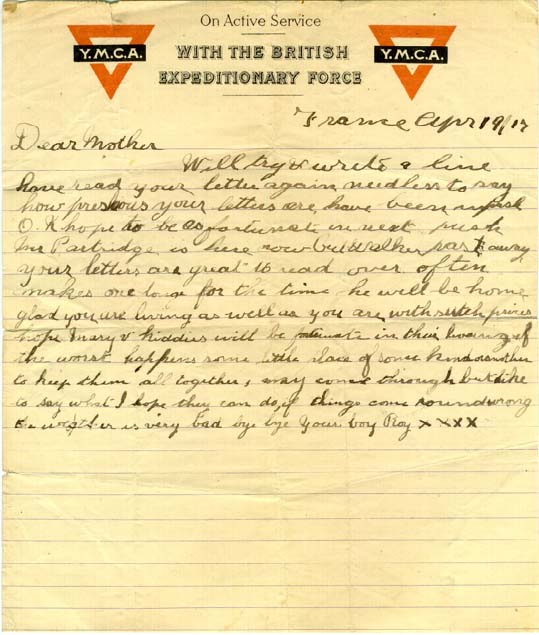 On Active Service
Y.M.C.A. Y.M.C.A.
WITH THE BRITISH
EXPEDITIONARY FORCE
France Apr 19/17
Dear Mother
Will try & write a line
have read your letter again needless to say
how your letters are, have been
O.K hope to be as fortunate in next push
Mr Partridge is here now but Walker away
your letters are great to read over often
makes one for the time he will be home
glad you are living as well as you are, with such prices
hope Mary & Kiddies will be fortunate in their if
the worst happens some little place of some kind or another
to keep them all together, may come through but like
to say what I hope they can do, if things come round wrong
is very bad bye bye Your boy Roy x x x x